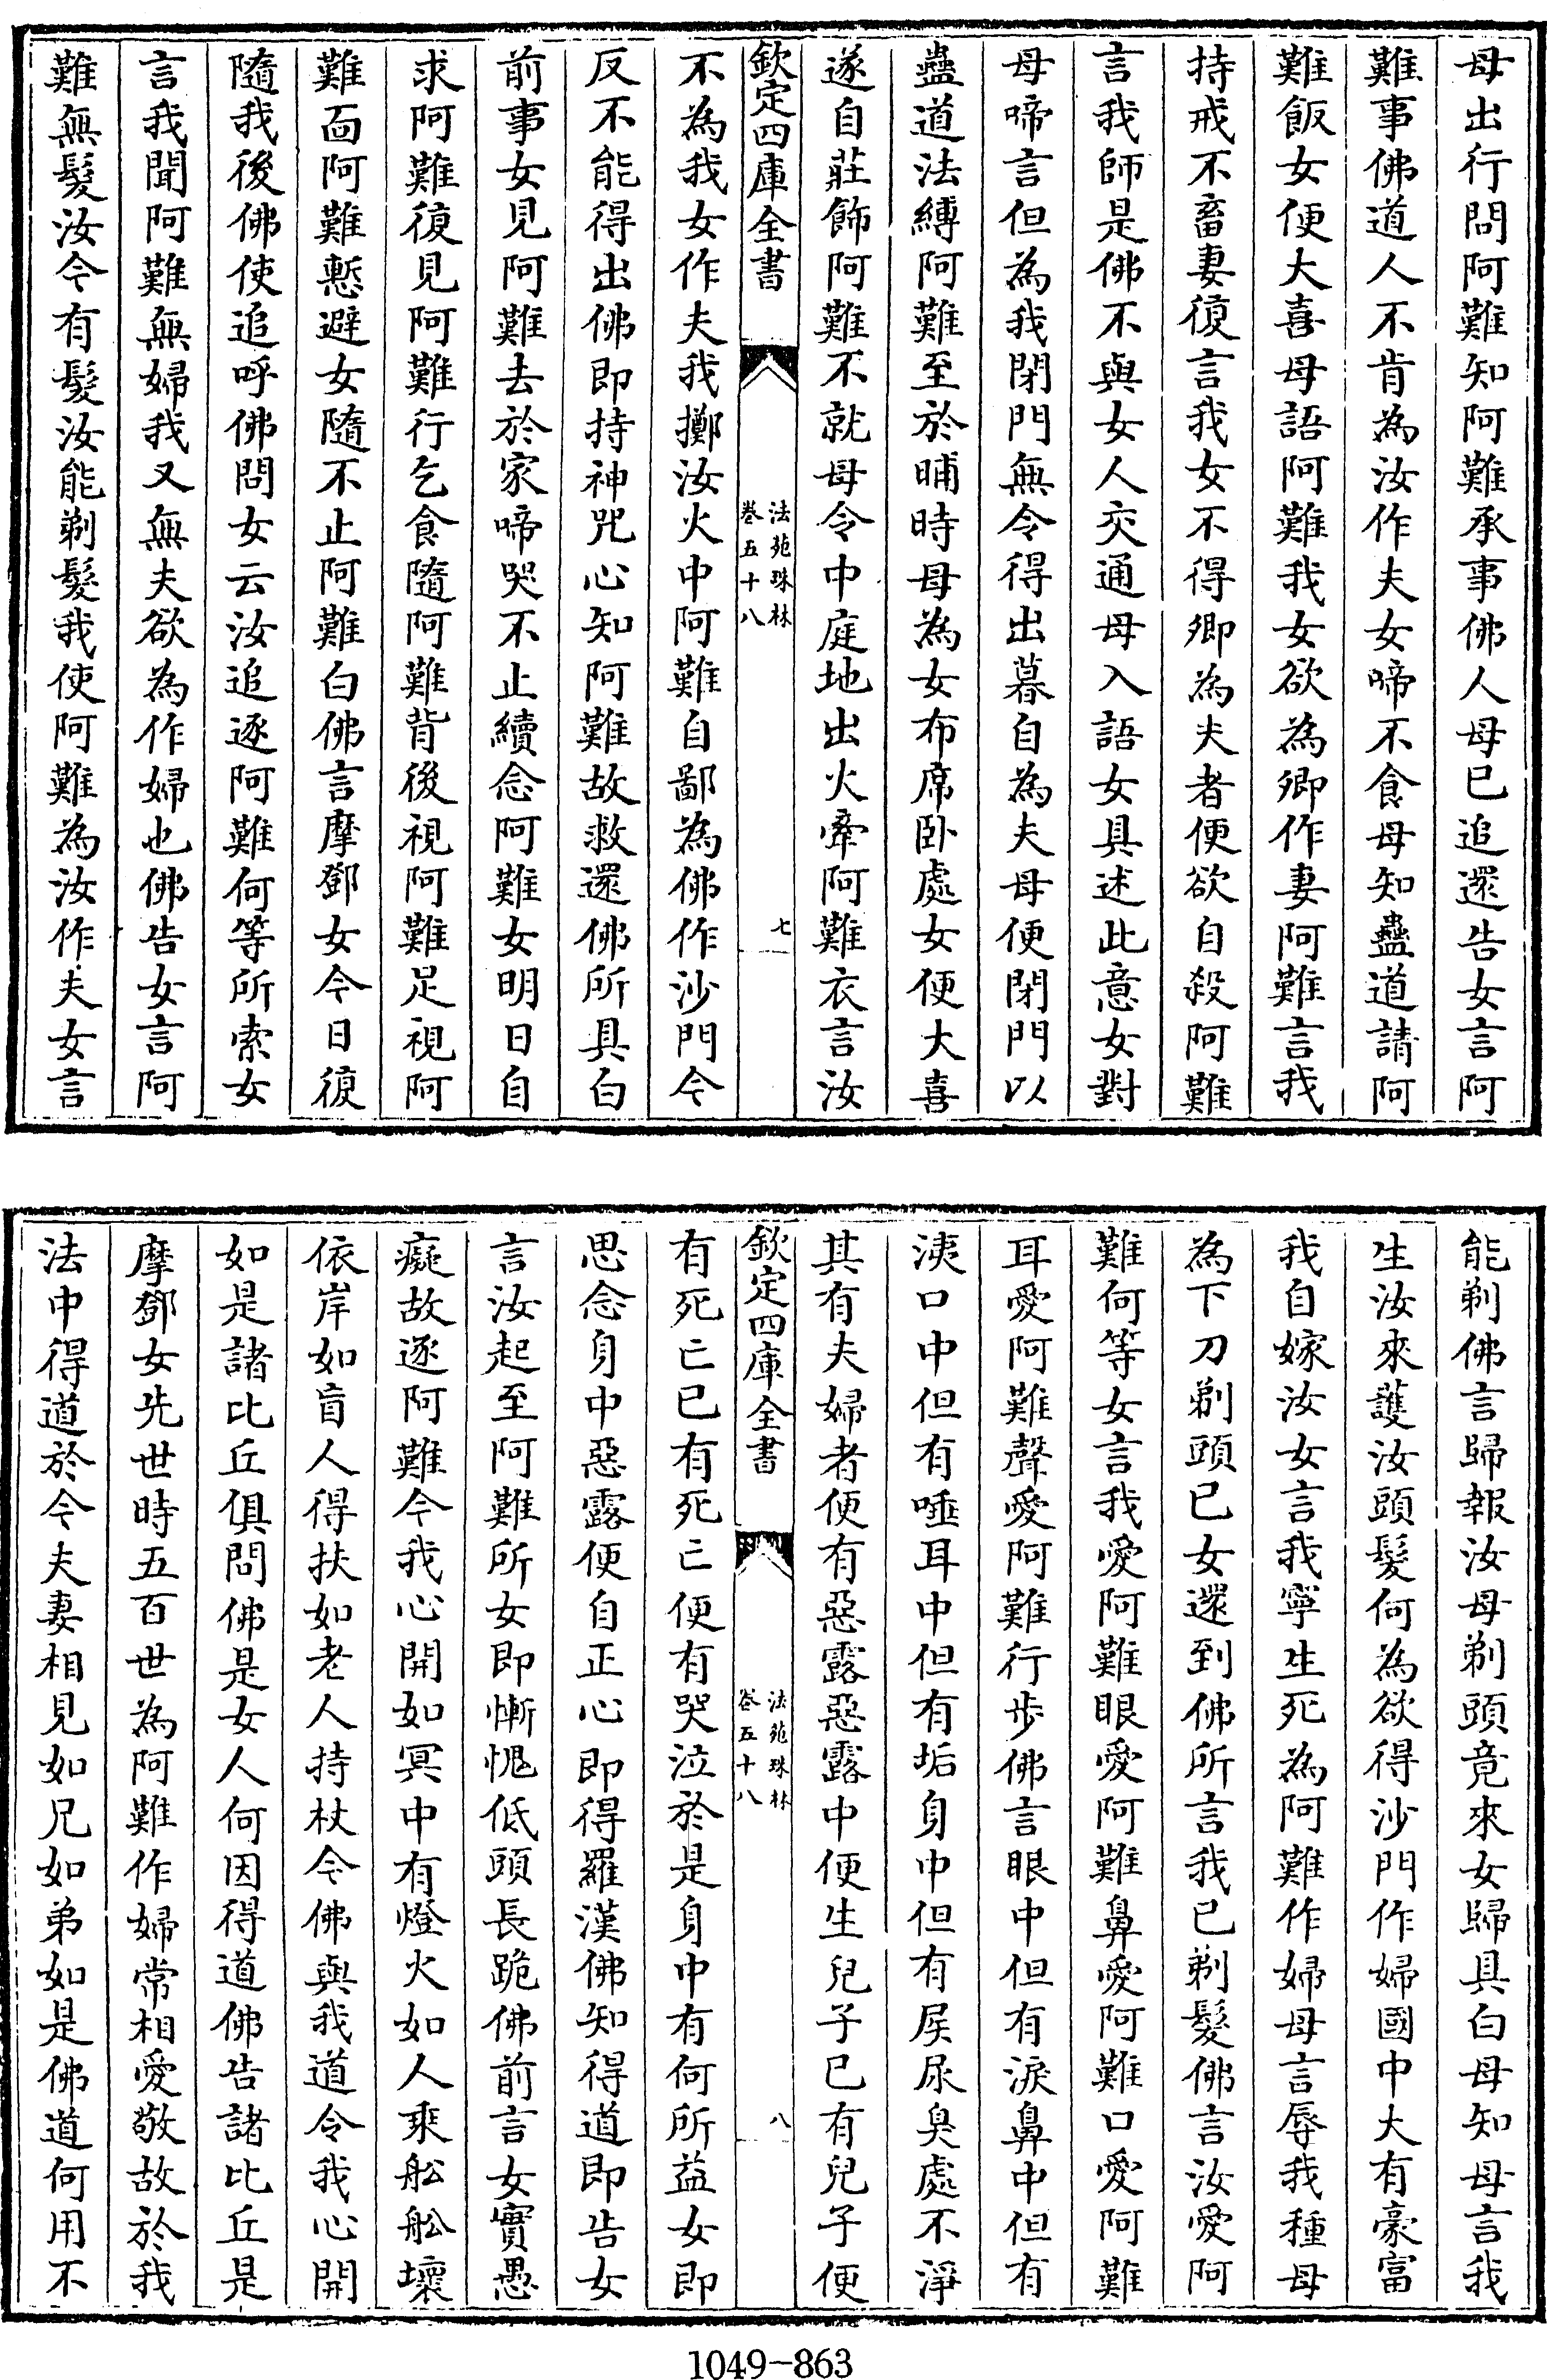 母出行問阿難知阿難承事佛人母已追還告女言阿
難事佛道人不肯為汝作夫女啼不食母知蠱道請阿
難飯女便大喜母語阿難我女欲為卿作妻阿難言我
持戒不畜妻復言我女不得卿為夫者便欲自殺阿難
言我師是佛不與女人交通母入語女具述此意女對
母啼言但為我閉門無令得出暮自為夫母便閉門以
蠱道法縛阿難至於晡時母為女布席卧處女便大喜
遂自莊飾阿難不就母令中庭地出火牽阿難衣言汝
欽定四庫全書
法苑珠林
卷五十八
七
不為我女作夫我擲汝火中阿難自鄙為佛作沙門今
反不能得出佛即持神咒心知阿難故救還佛所具白
前事女見阿難去於家啼哭不止續念阿難女明日自
求阿難復見阿難行乞食隨阿難背後視阿難足視阿
難面阿難慙避女隨不止阿難白佛言摩鄧女今日復
隨我後佛使追呼佛問女云汝追逐阿難何等所索女
言我聞阿難無婦我又無夫欲為作婦也佛告女言阿
難無髮汝今有髮汝能剃髮我使阿難為汝作夫女言
能剃佛言歸報汝母剃頭竟來女歸具白母知母言我
生汝來護汝頭髮何為欲得沙門作婦國中大有豪富
我自嫁汝女言我寧生死為阿難作婦母言辱我種母
為下刀剃頭已女還到佛所言我已剃髮佛言汝愛阿
難何等女言我愛阿難眼愛阿難鼻愛阿難口愛阿難
耳愛阿難聲愛阿難行步佛言眼中但有淚鼻中但有
洟口中但有唾耳中但有垢身中但有屎尿臭處不淨
其有夫婦者便有惡露惡露中便生兒子已有兒子便
欽定四庫全書
法苑珠林
卷五十八
八
有死亡已有死亡便有哭泣於是身中有何所益女即
思念身中惡露便自正心即得羅漢佛知得道即告女
言汝起至阿難所女即慚愧低頭長跪佛前言女實愚
癡故逐阿難今我心開如冥中有燈火如人乘舩舩壞
依岸如盲人得扶如老人持杖今佛與我道令我心開
如是諸比丘俱問佛是女人何因得道佛告諸比丘是
摩鄧女先世時五百世為阿難作婦常相愛敬故於我
法中得道於今夫妻相見如兄如弟如是佛道何用不
1049-863